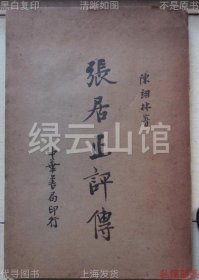 黑白复印
清晰如图
不是原书
陳翊林著
張居正評傳
中華書局印行
绿云山馆
代寻图书
上海发货